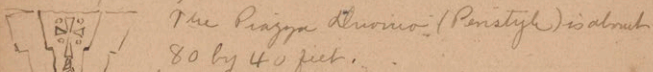 The Piazza Duomo (Peristyle) is about
80 by 40 feet.